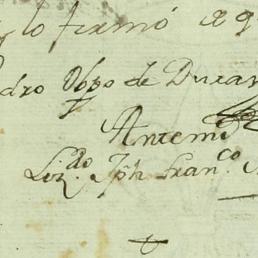 y lo firmó
dro Obpo de Duran
Ante mi
Lizdo Jph Franco